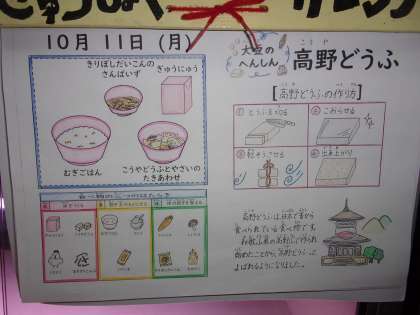 10月11日(月)
きりぼしだいこんの
さんばいず
ぎゅうにゅう
むぎごはん
こうやどうふとやさいの
たきあわせ
大豆の
へんしん
こうや
高野どうふ
[高野どうふの作り方]
① とうふを切る
② こおらせる
③ 乾そうさせる
④ 出来上がり
高野どうふは、日本で昔から
食べられている食べ物です。
和歌山県の高野山で作られ
始めたことから、高野どうふと
よばれるようになりました。